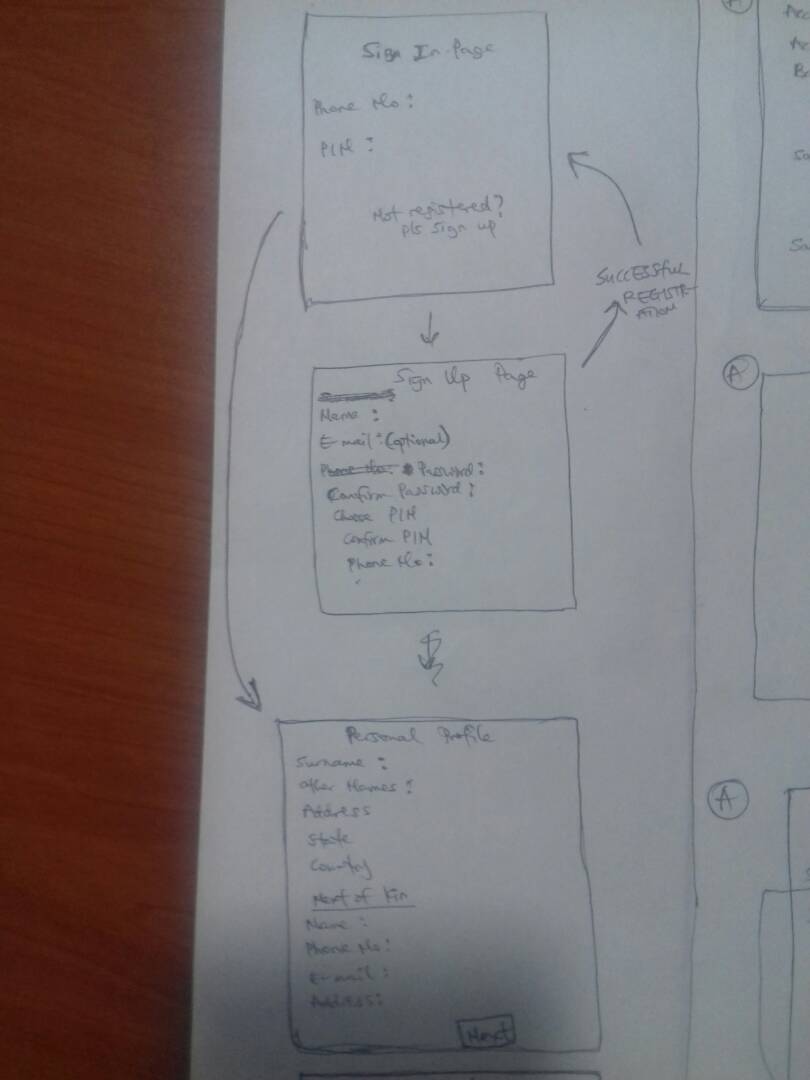 Sign In Page
Phone No:
PIN:
Not registered?
pls sign up
SUCCESSFUL
REGISTR-
ATION
Sign Up Page
Name:
E-mail:(optional)
Phone No: Password:
Confirm Password:
Choose PIN
Confirm PIN
Phone No:
Personal Profile
Surname:
Other Names:
Address
State
Country
Next of Kin
Name:
Phone No:
E-mail:
Address:
Next
A
Acc
Ac
Br
So
Sa
A
A